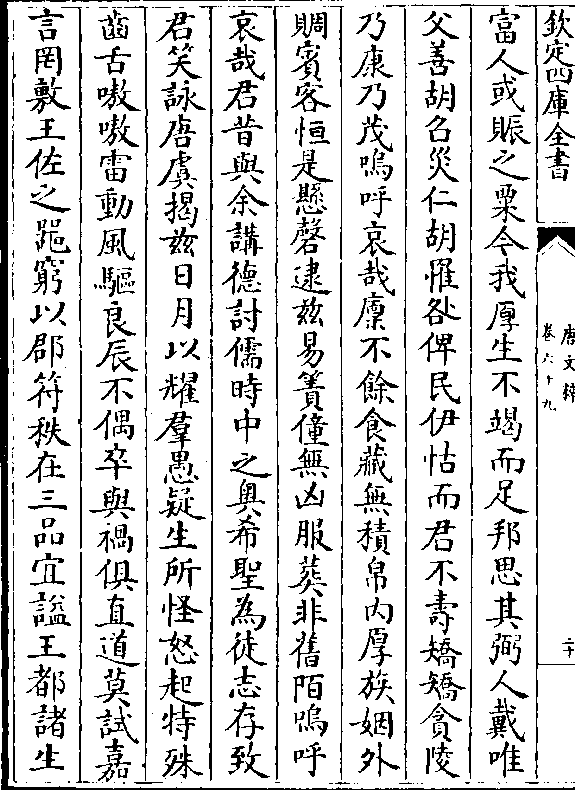 欽定四庫全書
唐文粹
卷六十九
二十
富人或賑之粟今我厚生不竭而足邦思其弼人戴唯
父善胡召災仁胡罹咎俾民伊怙而君不壽矯矯貪陵
乃康乃茂嗚呼哀哉廪不餘食藏無積帛内厚族姻外
賙賓客恒是懸罄逮兹易簀僮無凶服葬非舊陌嗚呼
哀哉君昔與余講德討儒時中之奥希聖為徒志存致
君笑詠唐虞揭兹日月以耀羣愚疑生所怪怒起特殊
齒舌嗷嗷雷動風驅良辰不偶卒與禍俱直道莫試嘉
言罔敷王佐之跪窮以郡符秩在三品宜諡王都諸生